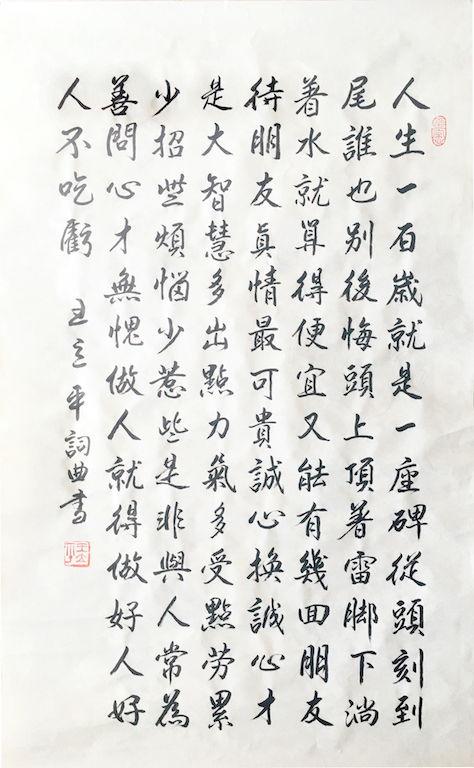 人生一百歲就是一座碑從頭刻到
尾誰也別後悔頭上頂著雷脚下淌
着水就算得便宜又能有幾回朋友
待朋友真情最可貴誠心換誠心才
是大智慧多出點力氣多受點勞累
少招些煩惱少惹些是非與人常為
善問心才無愧做人就得做好人好
人不吃虧
王立平詞曲書